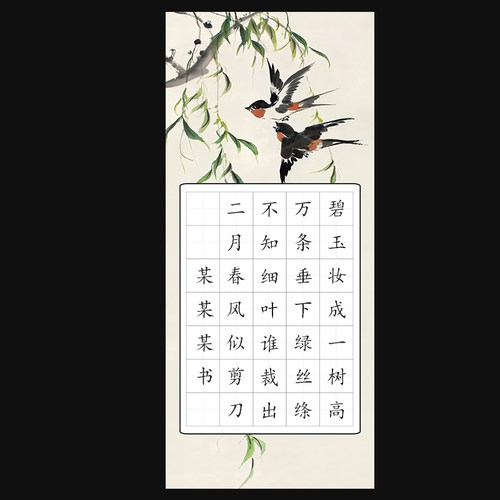 碧玉妆成一树高
万条垂下绿丝绦
不知细叶谁裁出
二月春风似剪刀
某某某书